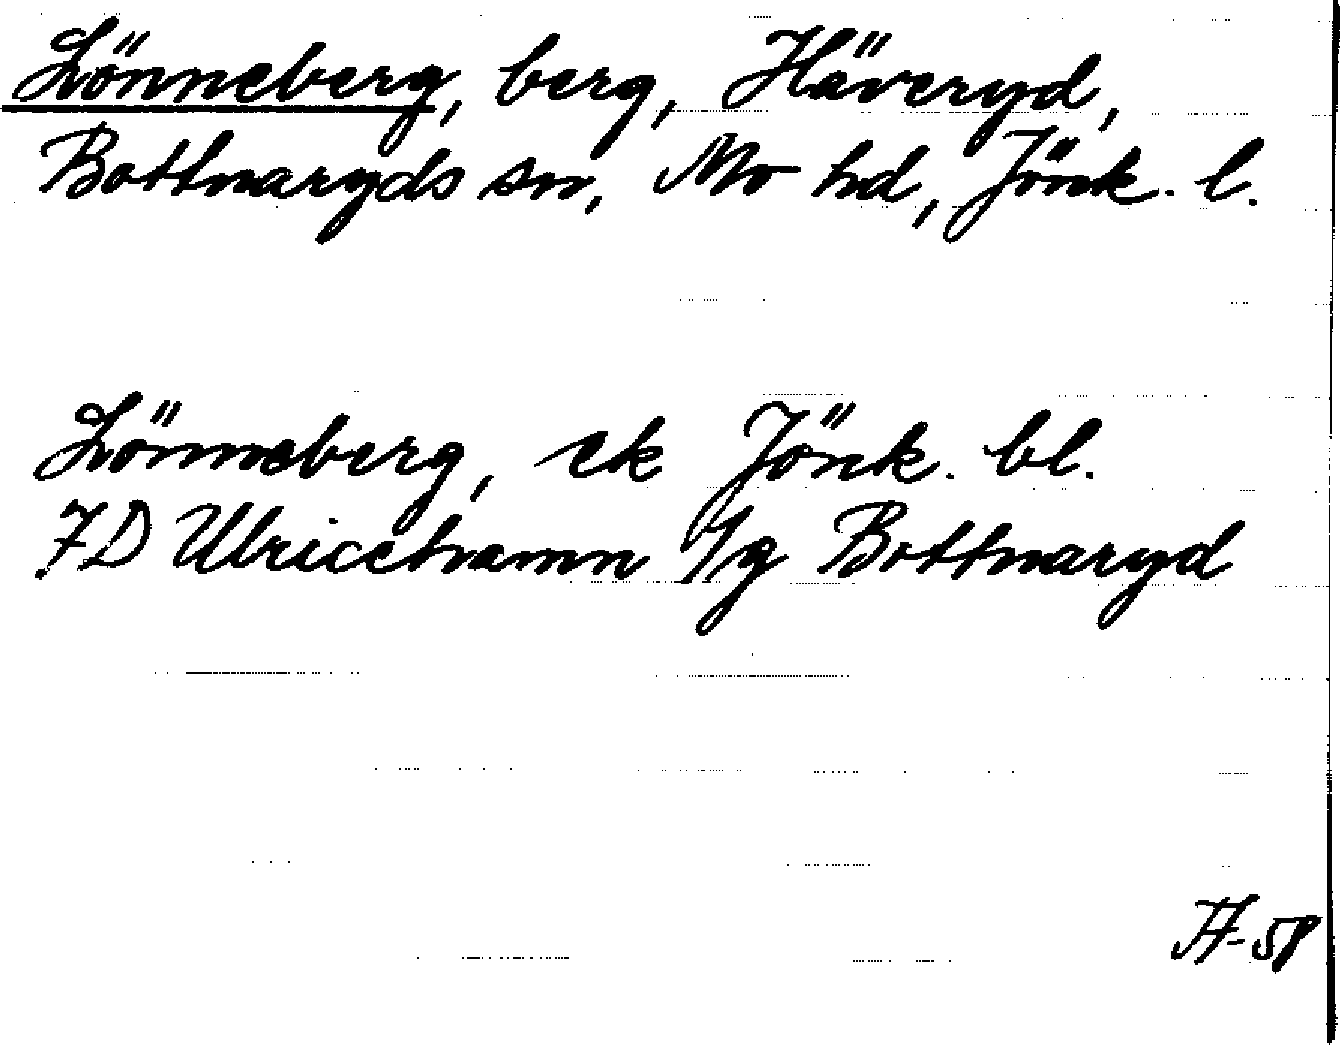 Lönneberg, berg, Häveryd,
Bottnaryds sn, Mo hd, Jönk. l.
Lönneberg, ek Jönk. bl.
7D Ulricehamn 1g Bottnaryd